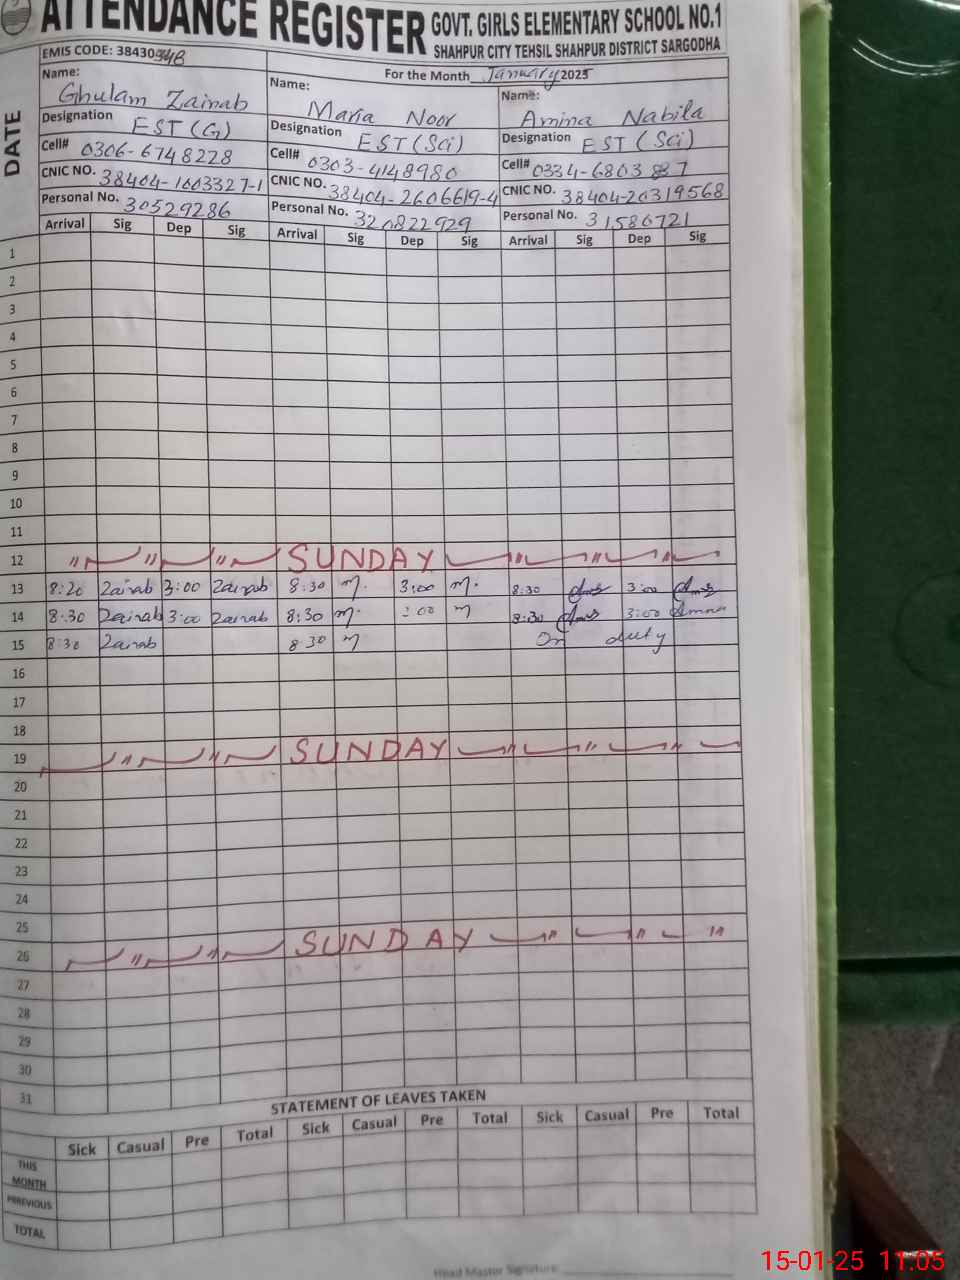 ATTENDANCE REGISTER GOVT. GIRLS ELEMENTARY SCHOOL NO.1
SHAHPUR CITY TEHSIL SHAHPUR DISTRICT SARGODHA
EMIS CODE: 38430
For the Month January 2025
DATE
Name: Ghulam Zainab Name: Maria Noor Name: Amina Nabila
Designation EST (G) Designation EST (Sci) Designation EST (Sci)
Cell# 0306-6748228 Cell# 0303-4148980 Cell# 0334-6803
CNIC NO. 38404-1003327-1 CNIC NO. 38404-2606619-4 CNIC NO. 38404-20319568
Personal No. 30529286 Personal No. 320822929 Personal No. 31586721
Arrival Sig Dep Sig Arrival Sig Dep Sig Arrival Sig Dep Sig
1
2
3
4
5
6
7
8
9
10
11
12 SUNDAY
13 8:20 Zainab 3:00 Zainab 8:30 m. 3:00 m. 8:30 3:00
14 8:30 Zainab 3:00 Zainab 8:30 m. :00 m 8:30 3:00 Amna
15 8:30 Zainab 8 30 m On duty
16
17
18
19 SUNDAY
20
21
22
23
24
25
26 SUNDAY
27
28
29
30
31
STATEMENT OF LEAVES TAKEN
Sick Casual Pre Total Sick Casual Pre Total Sick Casual Pre Total
THIS MONTH
PRREVIOUS
TOTAL
Head Master Signature:
15-01-25 11:05